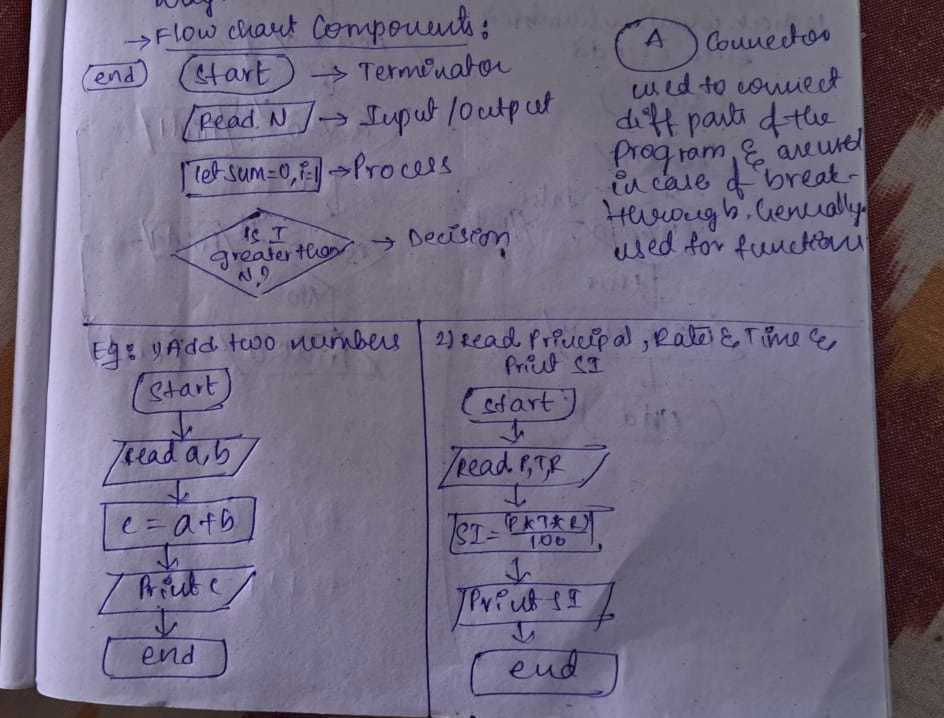 → Flow chart Components:
end Start → Terminator
Read N → Input/Output
let sum=0, i=1 → Process
is I
greater than
N? → Decision
A Connector
used to connect
diff parts of the
program, & are used
in case of break-
through. Generally
used for function
Eg: 1) Add two numbers
Start
read a,b
c = a+b
Print c
end
2) Read Principal, Rate & Time &
Print SI
Start
Read P,T,R
SI = (P*T*R)
100
Print SI
end